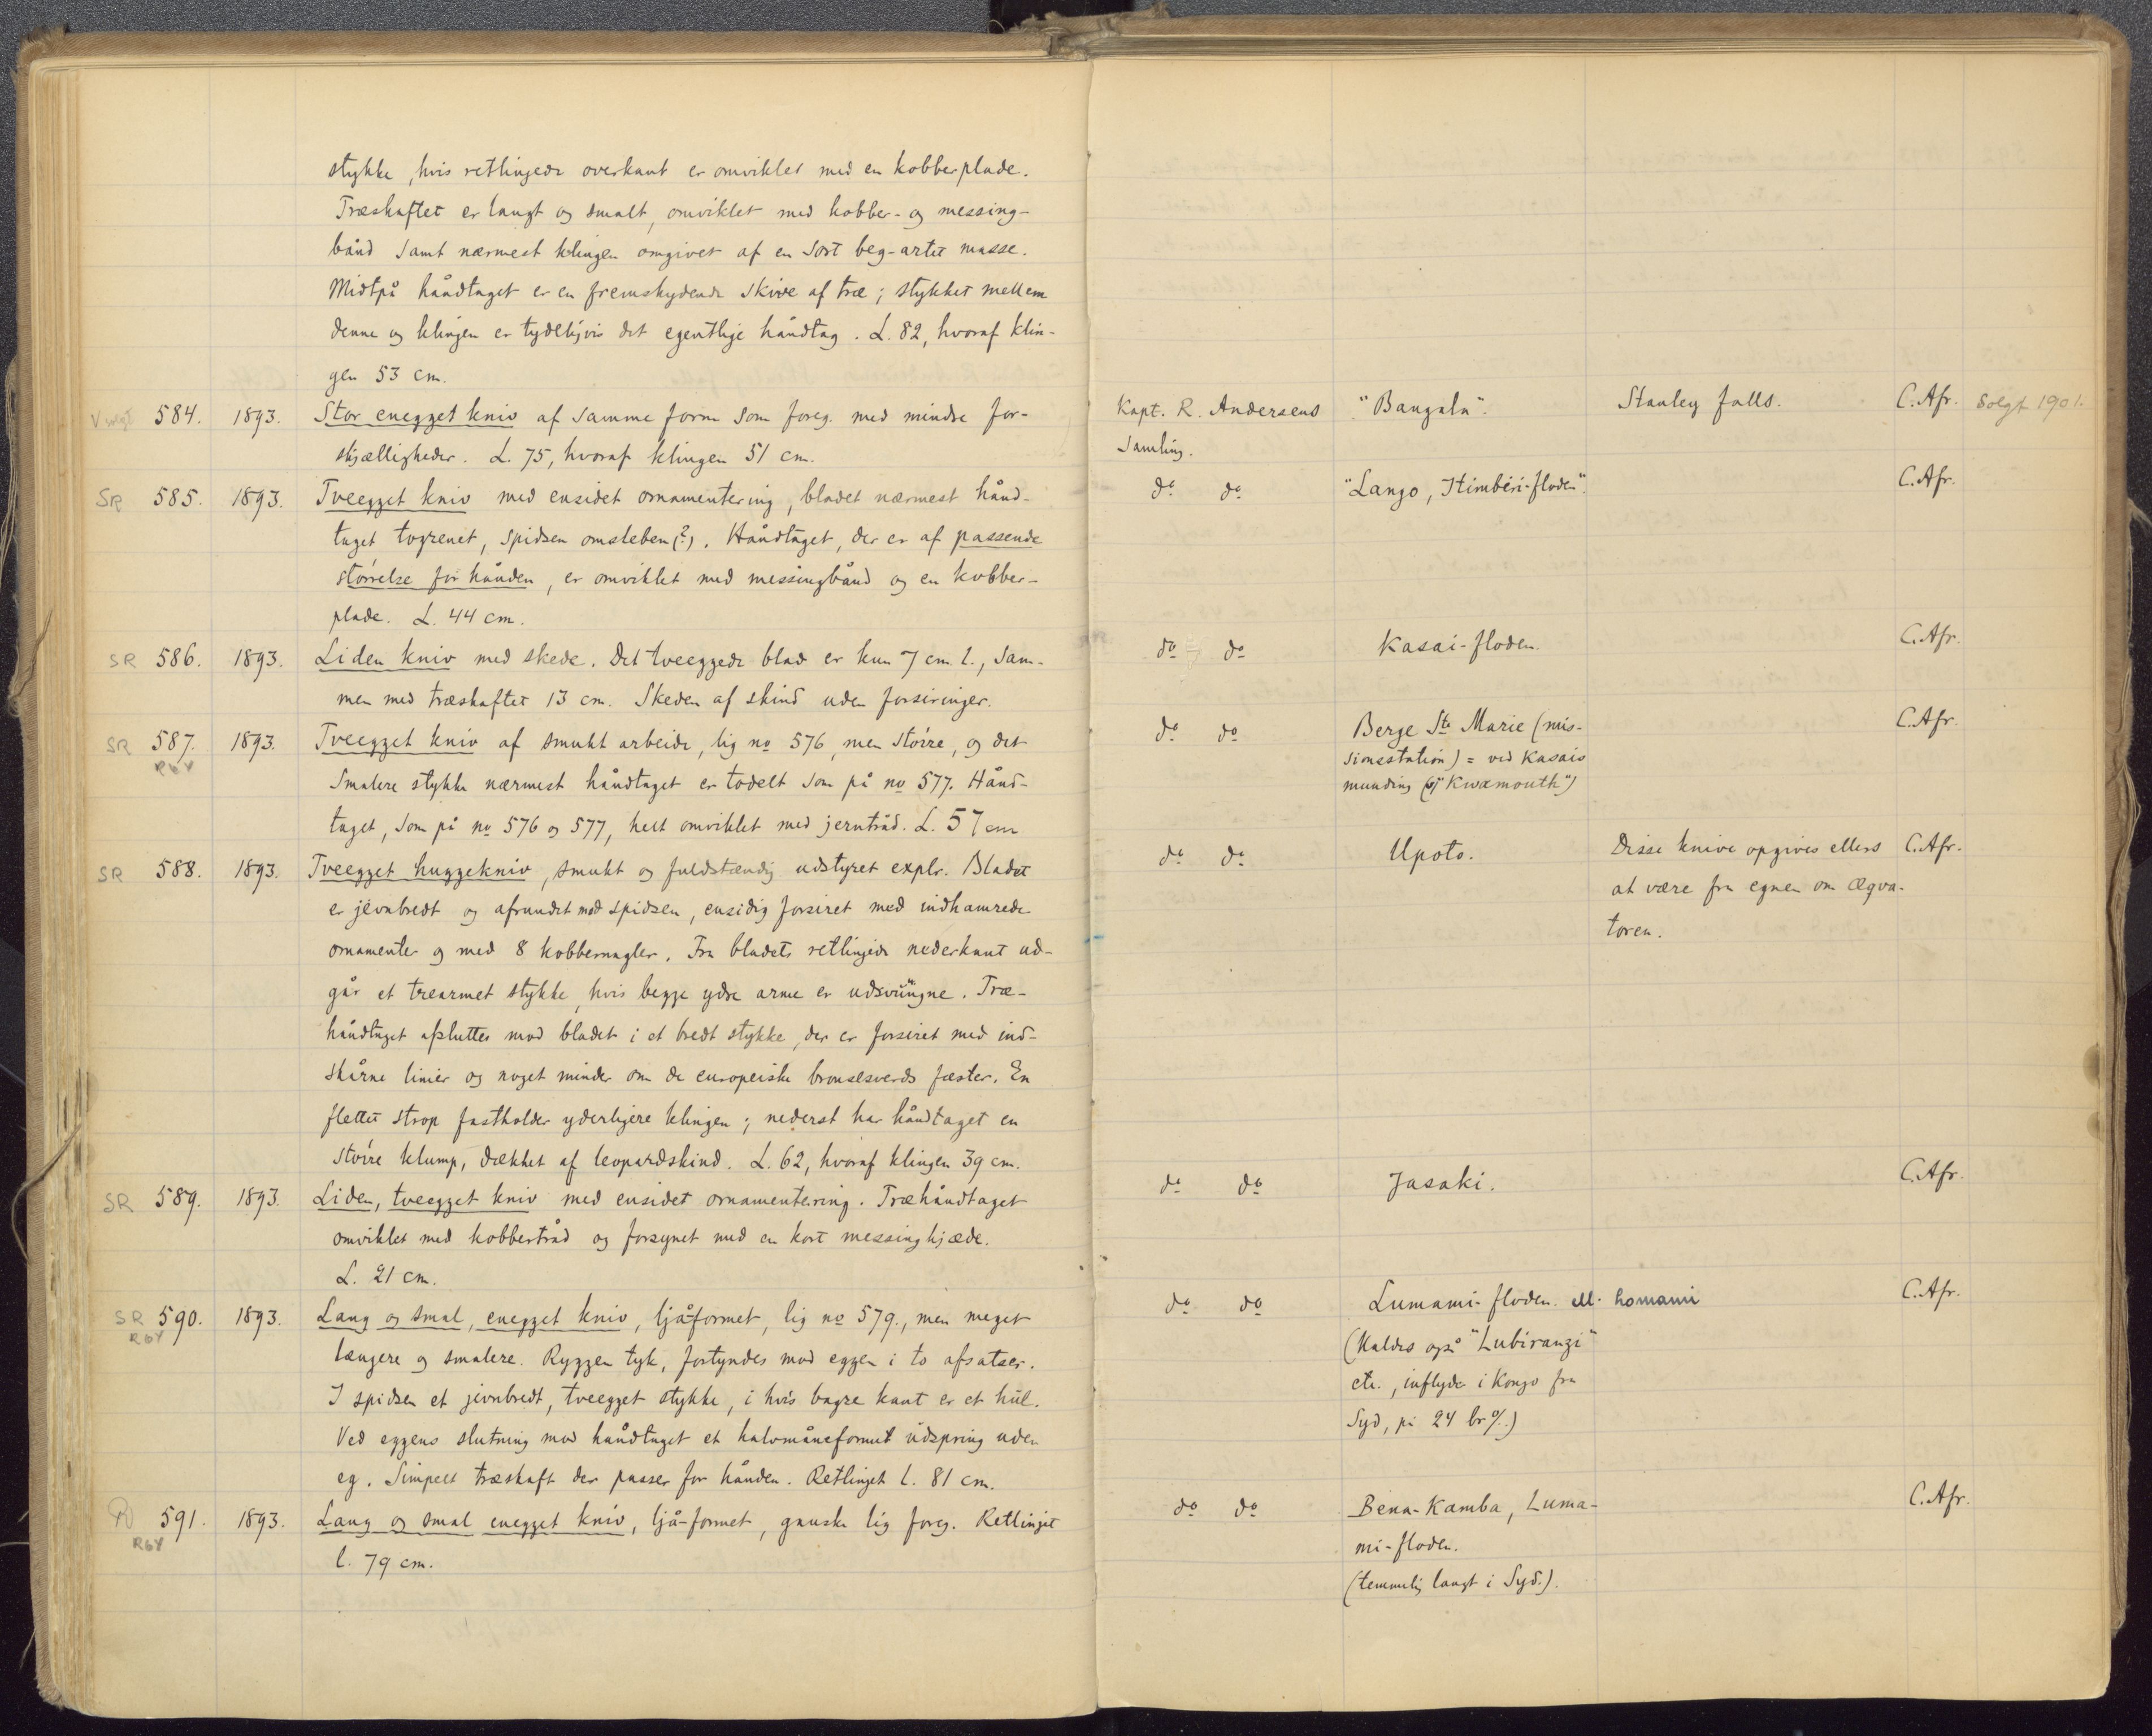 stykke, hvis retlinjede overkant er omviklet med en kobberplade.
Træskaftet er langt og smalt, omviklet med kobber- og messing-
bånd samt nærmest klingen omgivet af en sort beg-artet masse.
Midtpå håndtaget er en fremskydende skive af træ; stykket mellem
denne og klingen er tydeligvis det egentlige håndtag. L. 82, hvoraf klin-
gen 53 cm.
584. 1893. Stor enegget kniv af samme form som foreg. med mindre for- Kapt. R. Andersens "Bangala". Stanley falls. C. Afr. Solgt 1901.
skjælligheder. L. 75, hvoraf klingen 51 cm. Samling.
SR 585. 1893. Tveegget kniv med ensidet ornamentering, bladet nærmest hånd- do do "Lango, Itimbiri-floden". C. Afr.
taget togrenet, spidsen omsleben(?). Håndtaget, der er af passende
størrelse for hånden, er omviklet med messingbånd og en kobber-
plade. L. 44 cm.
SR 586. 1893. Liden kniv med skede. Det tveeggede blad er kun 7 cm. l., sam- do do Kasai-floden. C. Afr.
men med træskaftet 13 cm. Skeden af skind uden forsiringer.
SR 587. 1893. Tveegget kniv af smukt arbeide, lig no 576, men større, og det do do Berge Ste Marie (mis- C. Afr.
R6Y sionsstation) = ved Kasais
smalere stykke nærmest håndtaget er todelt som på no 577. Hånd- munding (og "Kwamouth")
taget, som på no 576 og 577, helt omviklet med jerntråd. L. 57 cm
SR 588. 1893. Tveegget huggekniv, smukt og fuldstændig udstyret explr. Bladet do do Upoto. Disse knive opgives ellers C. Afr.
er jevnbredt og afrundet mod spidsen, ensidig forsiret med indhamrede at være fra egnen om Æqva-
ornamenter og med 8 kobbernagler. Fra bladets retlinjede nederkant ud- toren.
går et trearmet stykke, hvis begge ydre arme er udsvungne. Træ-
håndtaget afsluttes mod bladet i et bredt stykke, der er forsiret med ind-
skårne linier og noget minder om de europeiske bronsesverds fæster. En
flettet strop fastholder yderligere klingen; nederst har håndtaget en
større klump, dækket af leopardskind. L. 62, hvoraf klingen 39 cm.
SR 589. 1893. Liden, tveegget kniv med ensidet ornamentering. Træhåndtaget do do Jasaki. C. Afr.
omviklet med kobbertråd og forsynet med en kort messingkjæde.
L. 21 cm.
SR 590. 1893. Lang og smal, enegget kniv, ljåformet, lig no 579., men meget do do Lumami-floden. ell. Lomami C. Afr.
R6Y længere og smalere. Ryggen tyk, fortyndes mod eggen i to afsatser. (Kaldes også "Lubiranzi"
I spidsen et jevnbredt, tveegget stykke, i hvis bagre kant er et hul. etc., inflyder i Kongo fra
Ved eggens slutning mod håndtaget et halvmåneformet udspring uden Syd, på 24 br %.)
eg. Simpelt træskaft der passer for hånden. Retlinjet l. 81 cm.
591. 1893. Lang og smal enegget kniv, ljå-formet, ganske lig foreg. Retlinjet do do Bena-Kamba, Luma- C. Afr.
R6Y l. 79 cm. mi-floden.
(temmelig langt i Syd.).